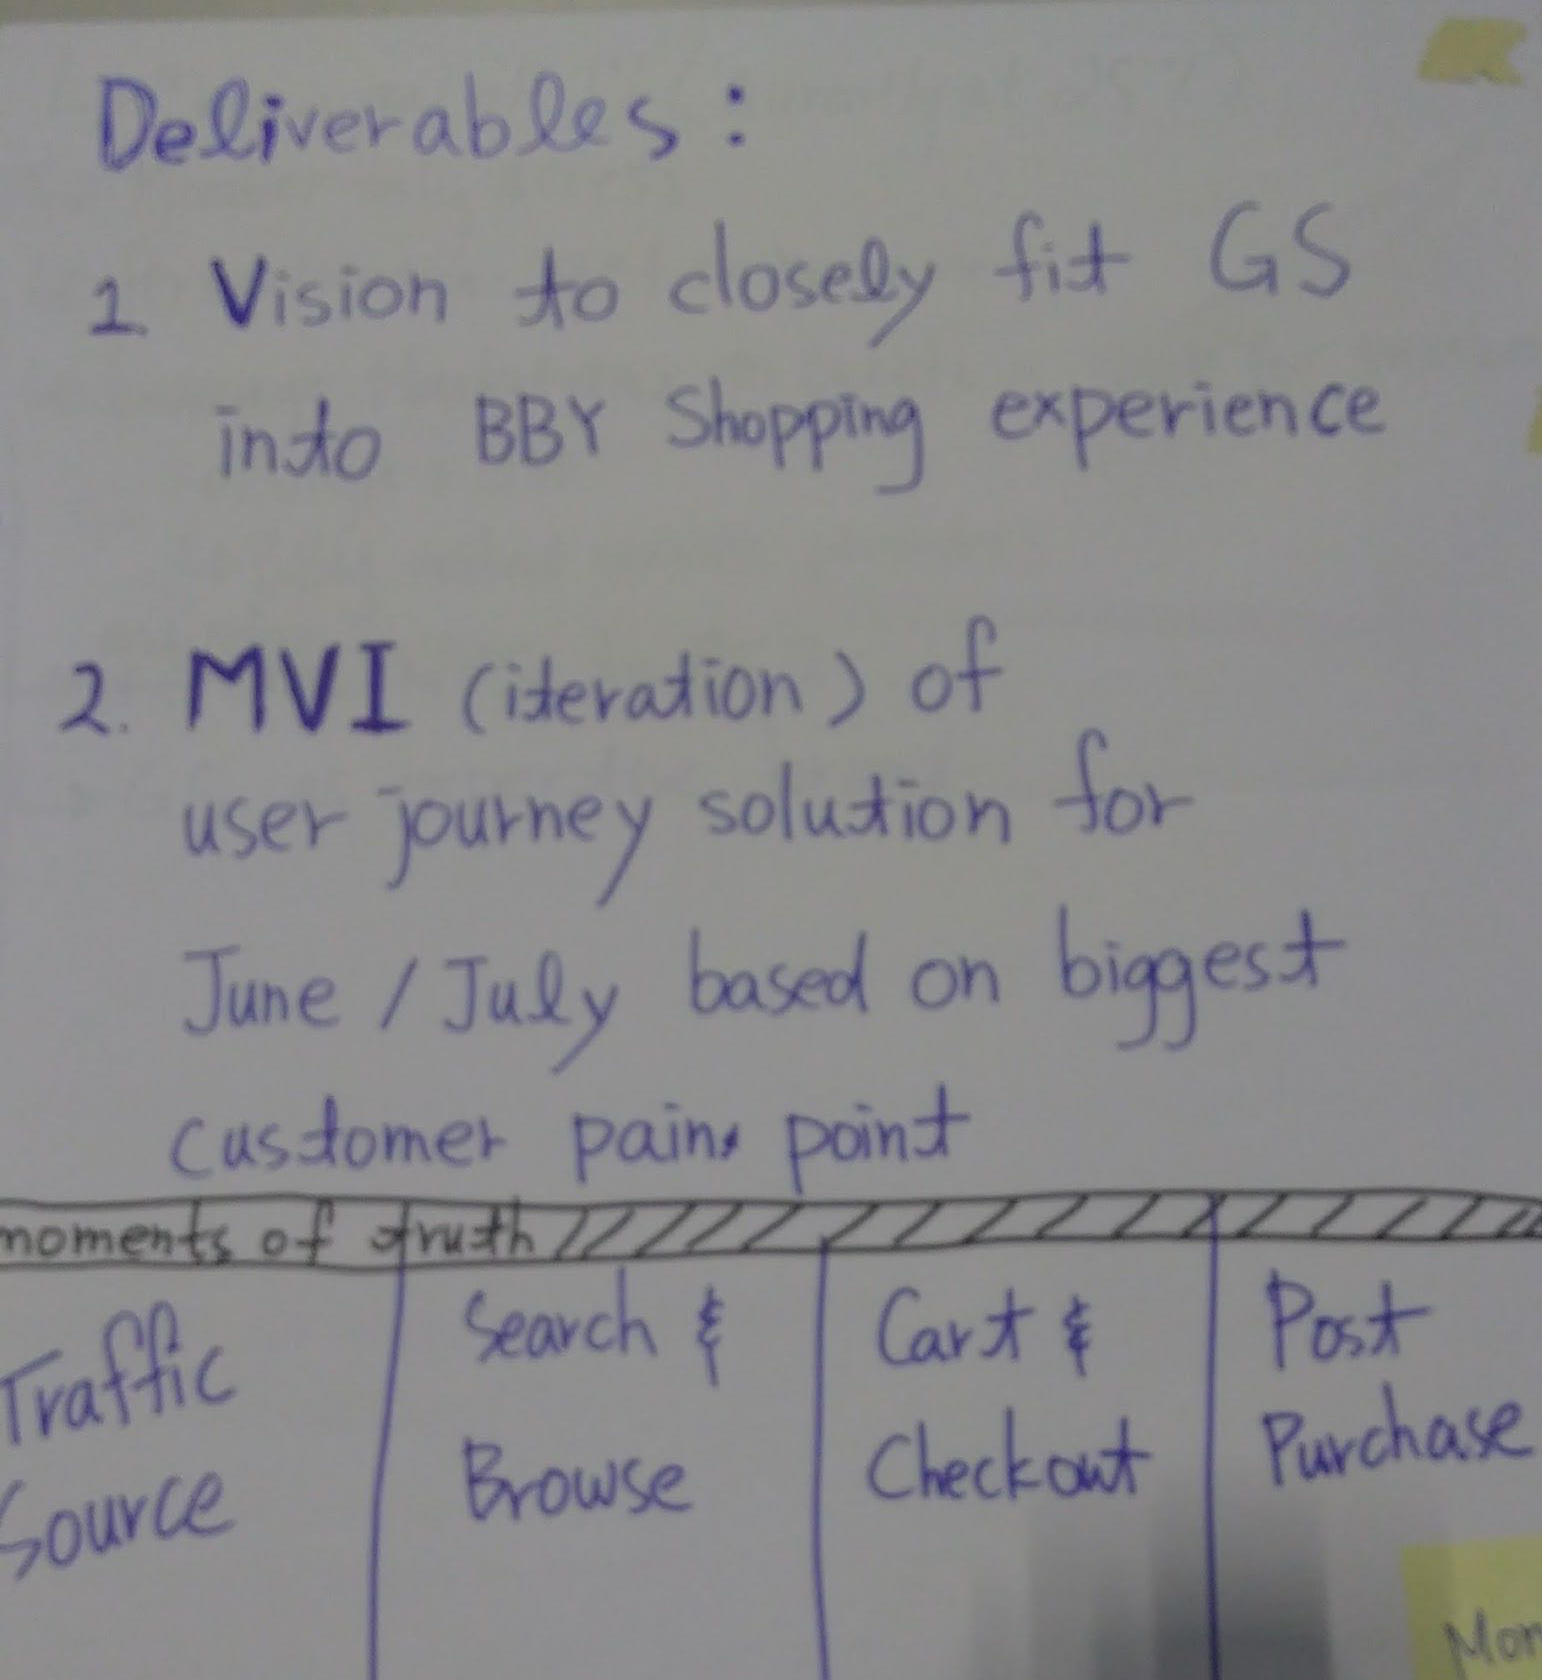 Deliverables:
1 Vision to closely fit GS
into BBY Shopping experience
2. MVI (iteration) of
user journey solution for
June / July based on biggest
customer pain point
moments of truth
Traffic
Source
Search &
Browse
Cart &
Checkout
Post
Purchase